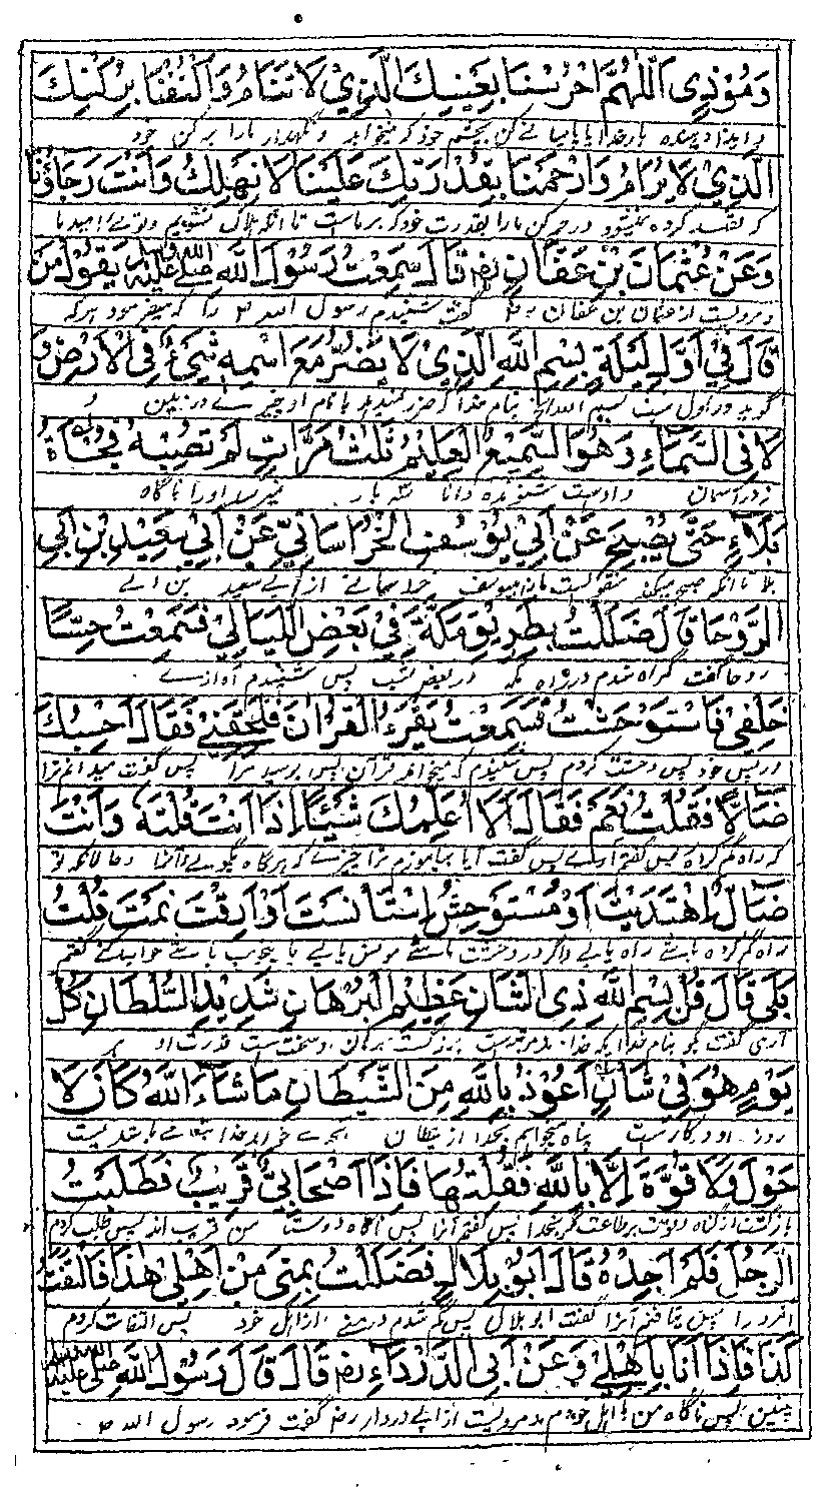 وَمُؤْذِي اَللّٰهُمَّ احْرُسْنَا بِعَيْنِكَ الَّذِيْ لَا تَنَامُ وَاكْنُفْنَا بِرُكْنِكَ
بارخدایا پاسبانے کن بچشم خود کہ نمیخوابد و نگہدار مارا برکن خود
الَّذِيْ لَا يُرَامُ وَارْحَمْنَا بِقُدْرَتِكَ عَلَيْنَا لَا نَهْلِكُ وَاَنْتَ رَجَاؤُنَا
کہ قصد کردہ نمیشود و رحم کن مارا بقدرت خود کہ برماست تا آنکہ ہلاک نشویم و توئے امید ما
وَعَنْ عُثْمَانَ بْنِ عَفَّانِ رض قَالَ سَمِعْتُ رَسُوْلَ اللّٰهِ صلى الله عليه وسلم يَقُوْلُ مَنْ
و مرویست از عثمان بن عفان رض گفت شنیدم رسول اللہ ص را کہ میفرمود ہرکہ
قَالَ فِيْ اَوَّلِ لَيْلَةٍ بِسْمِ اللّٰهِ الَّذِيْ لَا يَضُرُّ مَعَ اسْمِهٖ شَيْءٌ فِى الْاَرْضِ وَ
گوید در اول شب بسم اللہ الخ بنام خدا کہ ضرر نمیدہد با نام او چیزے در زمین و
لَا فِى السَّمَاءِ وَهُوَ السَّمِيْعُ الْعَلِيْمُ ثَلٰثَ مَرَّاتٍ لَمْ تُصِيْبُهٗ فُجَاءَةُ
نہ در آسمان و اوست شنوندہ دانا سہ بار نمیرسد اورا ناگاہ
بَلَاءٍ حَتّٰى يُصْبِحَ عَنْ اَبِيْ يُوْسُفَ الْخُرَاسَانِيِّ عَنْ اَبِيْ سَعِيْدِ بْنِ اَبِي
بلا تا آنکہ صبح میکند منقولست از ابو یوسف خراسانے از ابے سعید بن ابے
الرَّوْحَا قَالَ ضَلَلْتُ بِطَرِيْقِ مَكَّةَ فِيْ بَعْضِ اللَّيَالِيْ فَسَمِعْتُ حِسًّا
روحا گفت گمراہ شدم در راہ مکہ در بعض شب پس شنیدم آوازے
خَلْفِيْ فَاسْتَوْحَشْتُ فَسَمِعْتُ يَقْرَءُ الْقُرْاٰنَ فَلَحِقَنِيْ فَقَالَ اَحْسِبُكَ
در پس خود پس وحشت کردم پس شنیدم کہ میخواند قرآن پس برسید مرا پس گفت میدانم ترا
ضَالًّا فَقُلْتُ نَعَمْ فَقَالَ اَلَا اُعَلِّمُكَ شَيْئًا اِذَا اَنْتَ قُلْتَهٗ وَاَنْتَ
کہ راہ گم کردہ پس گفتم آرے پس گفت آیا بیاموزم ترا چیزے کہ ہرگاہ بگوئے آنرا و حالانکہ تو
ضَالٌّ اِهْتَدَيْتَ اَوْ مُسْتَوْحِشٌ اِسْتَانَسْتَ اَوْ اَرِقْتَ نِمْتَ قُلْتُ
راہ گم کردہ باشے راہ یابے و اگر در وحشت باشے مونس یابے یا بیخواب باشے خواب کنے گفتم
بَلٰى قَالَ قُلْ بِسْمِ اللّٰهِ ذِى الشَّانِ عَظِيْمِ الْبُرْهَانِ شَدِيْدِ السُّلْطَانِ كُلَّ
آرے گفت بگو بنام خدا کہ بزرگست برہان او سخت ست قدرت او ہر
يَوْمٍ هُوَ فِيْ شَاْنٍ اَعُوْذُ بِاللّٰهِ مِنَ الشَّيْطَانِ مَا شَاءَ اللّٰهُ كَانَ لَا
روز او در کارست پناہ میخواہم بخدا از شیطان
حَوْلَ وَلَا قُوَّةَ اِلَّا بِاللّٰهِ فَقُلْتُهَا فَاِذَا اَصْحَابِيْ قَرِيْبٌ فَطَلَبْتُ
پس گفتم آنرا پس ناگاہ دوستان من قریب اند پس طلب کردم
الرَّجُلَ فَلَمْ اَجِدْهُ قَالَ اَبُوْ بِلَالٍ فَضَلَلْتُ بِمِنٰى مِنْ اَهْلِيْ هٰذَا فَالْتَفَتُّ
آنمرد را پس نیافتم آنرا گفت ابو بلال پس گم شدم در منے از اہل خود پس التفات کردم
كَذَا فَاِذَا اَنَا بِاَهْلِيْ وَعَنْ اَبِى الدَّرْدَاءِ رض قَالَ قَالَ رَسُوْلُ اللّٰهِ صلى الله عليه وسلم
چنین پس ناگاہ من با اہل خودم و مرویست از ابے دردا رض گفت فرمود رسول اللہ ص